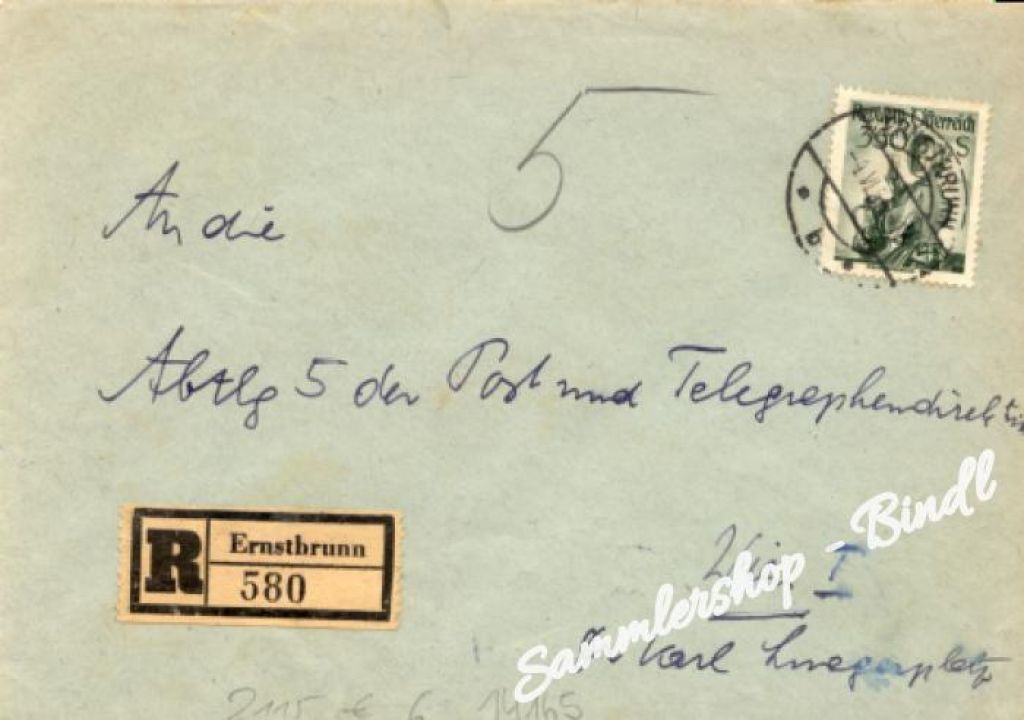 5
Republik Österreich
S
b
An die
Abtlg 5 der Post und Telegraphendirektion
R Ernstbrunn
580
Wien I
Karl Luegerplatz
Sammlershop - Bindl
2115 € 6 14165